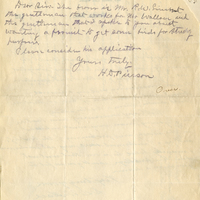 Dear Sir: The bearer is Mr. 
the gentleman that works for Mr Wallace and
the gentleman that I spoke to you about
wanting a permit to get some birds for study
purposes.
Please consider his application
Yours Truly
H.
Over